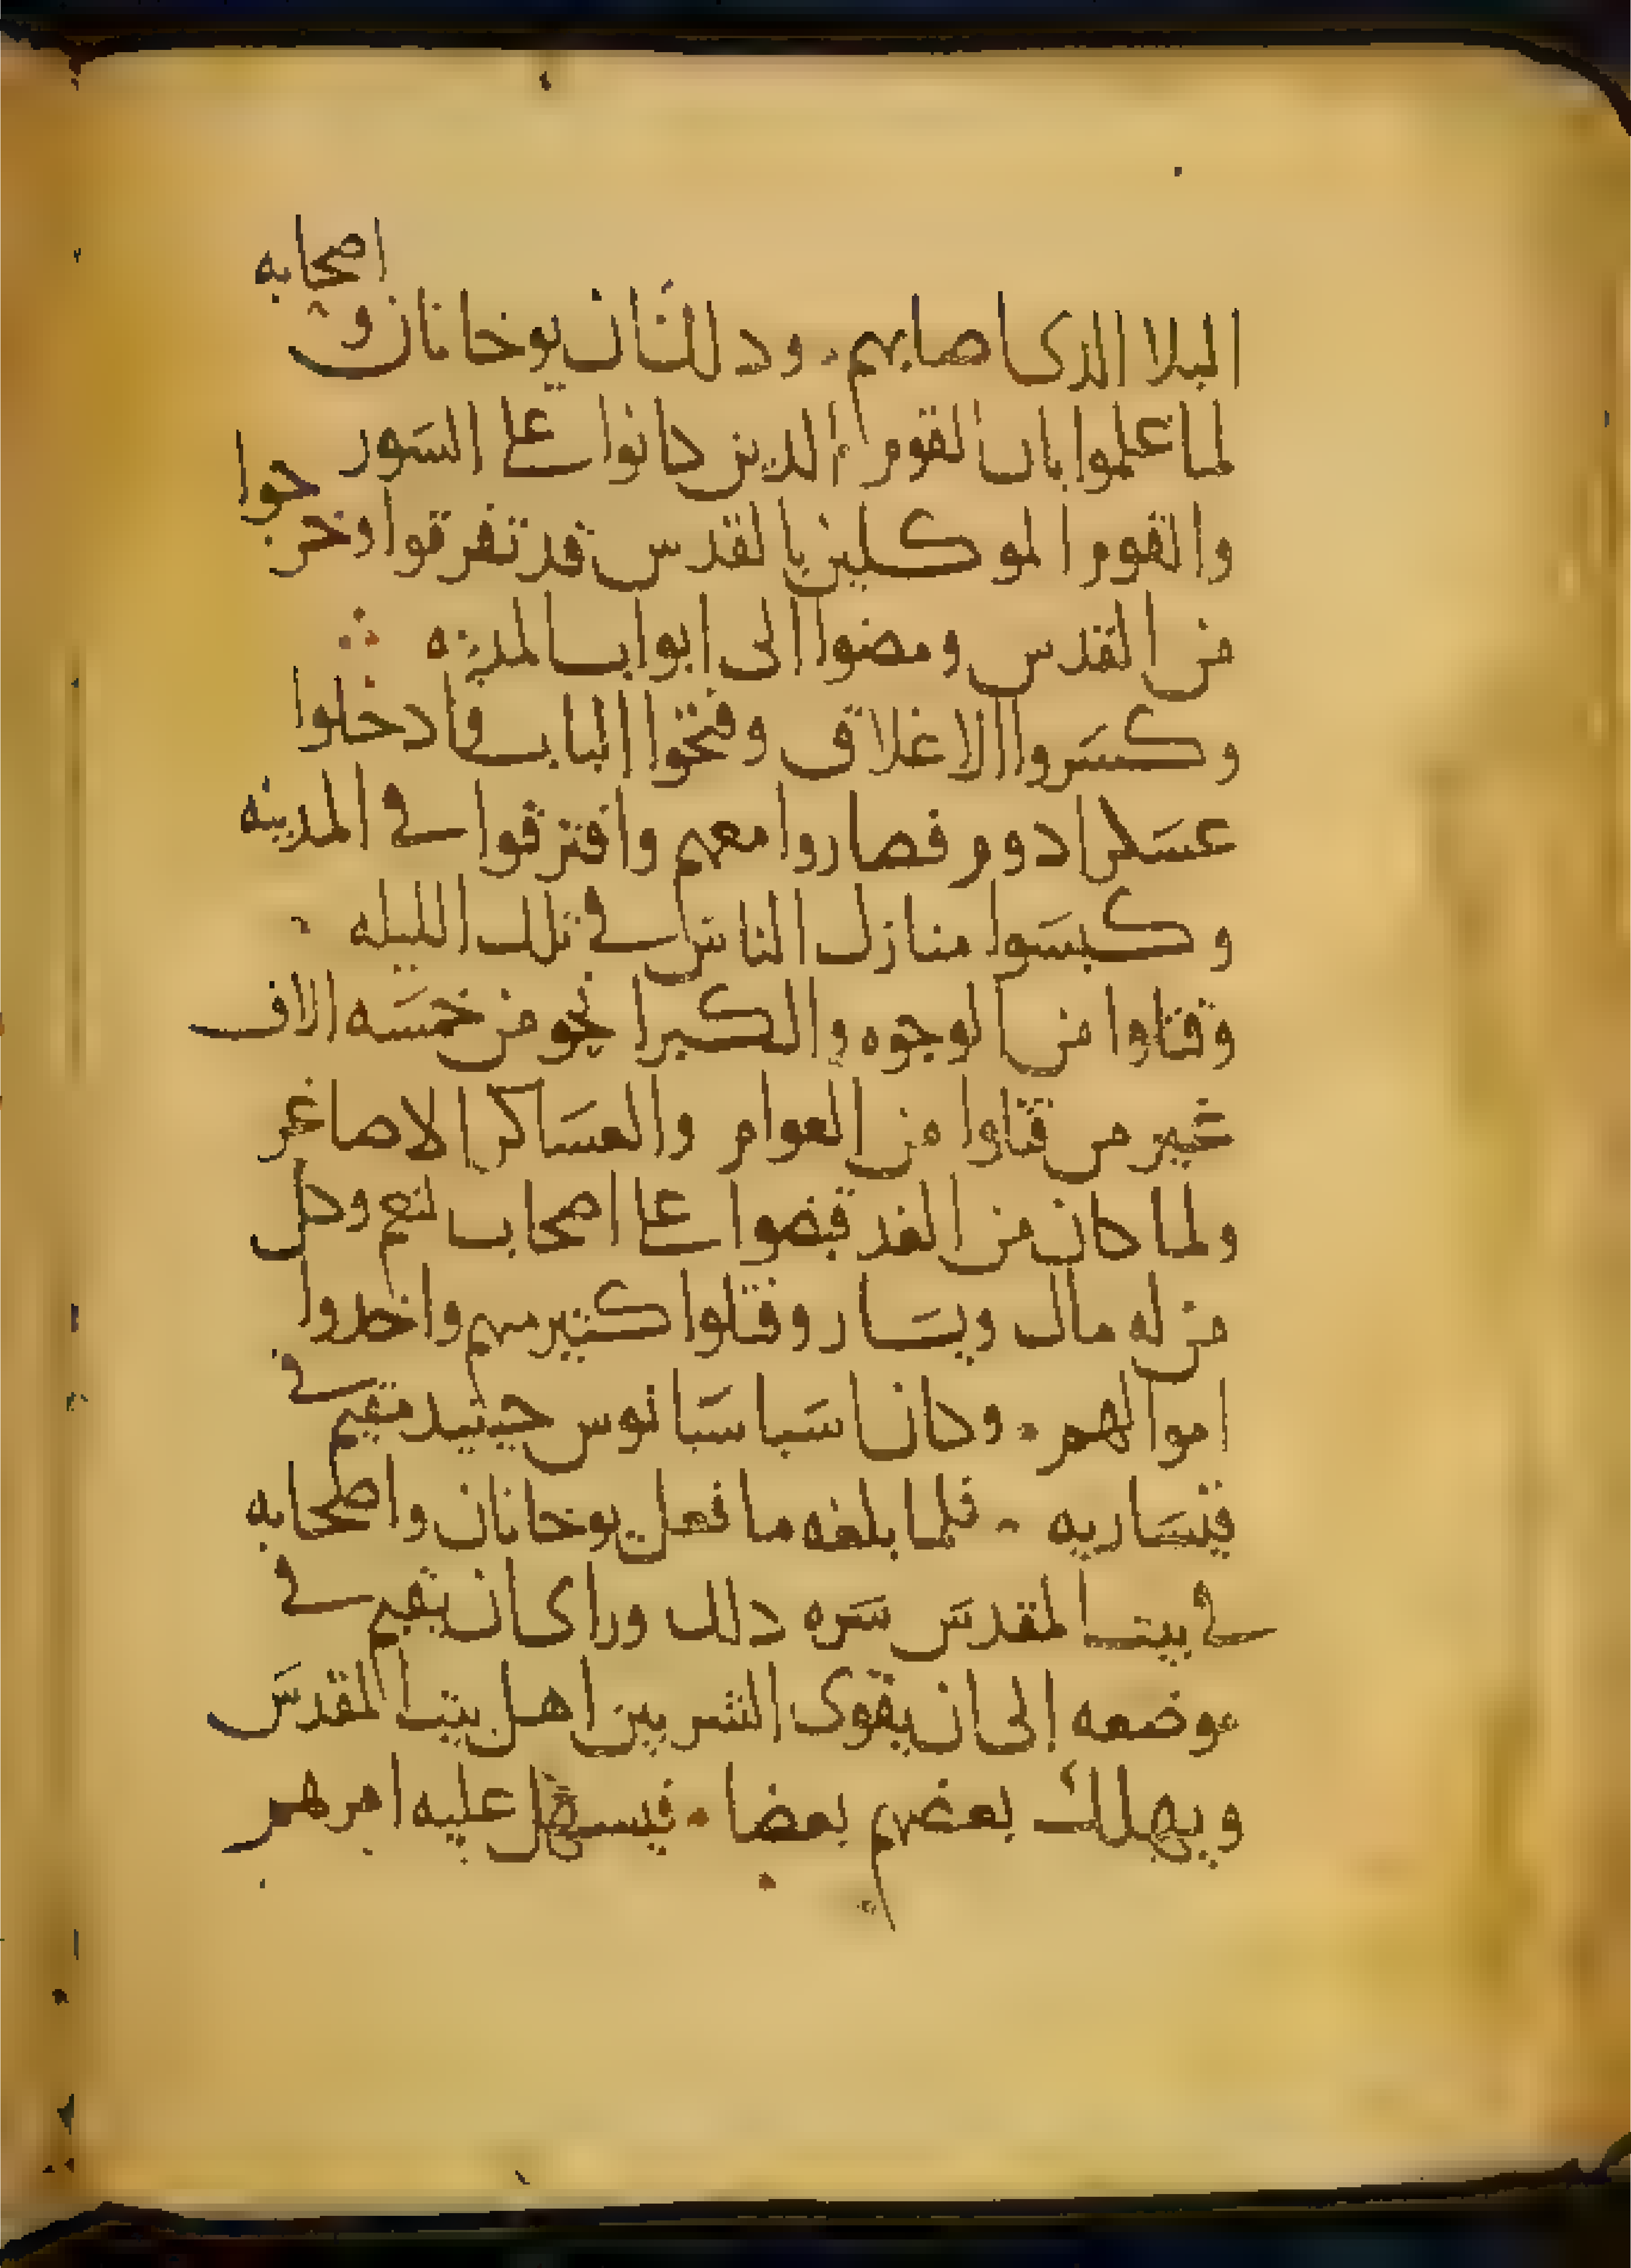 البلا الدى اصابهم . ودلك ان يوخانان واصحابه
لما علموا بان القوم الدين كانوا على السور
والقوم الموكلين بالقدس قد تفرقوا وخرجوا
من القدس ومضوا الى ابواب المدينه
وكسروا الاغلاق وفتحوا الباب وادخلوا
عسكر ادوم فصاروا معهم وافترقوا في المدينه
وكبسوا منازل الناس في تلك الليله
وقتلوا من الوجوه والكبرا نحو من خمسه الاف
غير من قتلوا من العوام والعساكر الاصاغر
ولما كان من الغد قبضوا على اصحاب نعم وكل
من له مال ويسار وقتلوا كتير منهم واخدوا
اموالهم . وكان اسباسبانوس حينيد مقيم في
قيساريه . فلما بلغه ما فعل يوخانان واصحابه
في بيت المقدس سره دلك وراى ان يقيم في
موضعه الى ان يقوى الشر بين اهل بيت المقدس
ويهلك بعضهم بعضا . فيسهل عليه امرهم